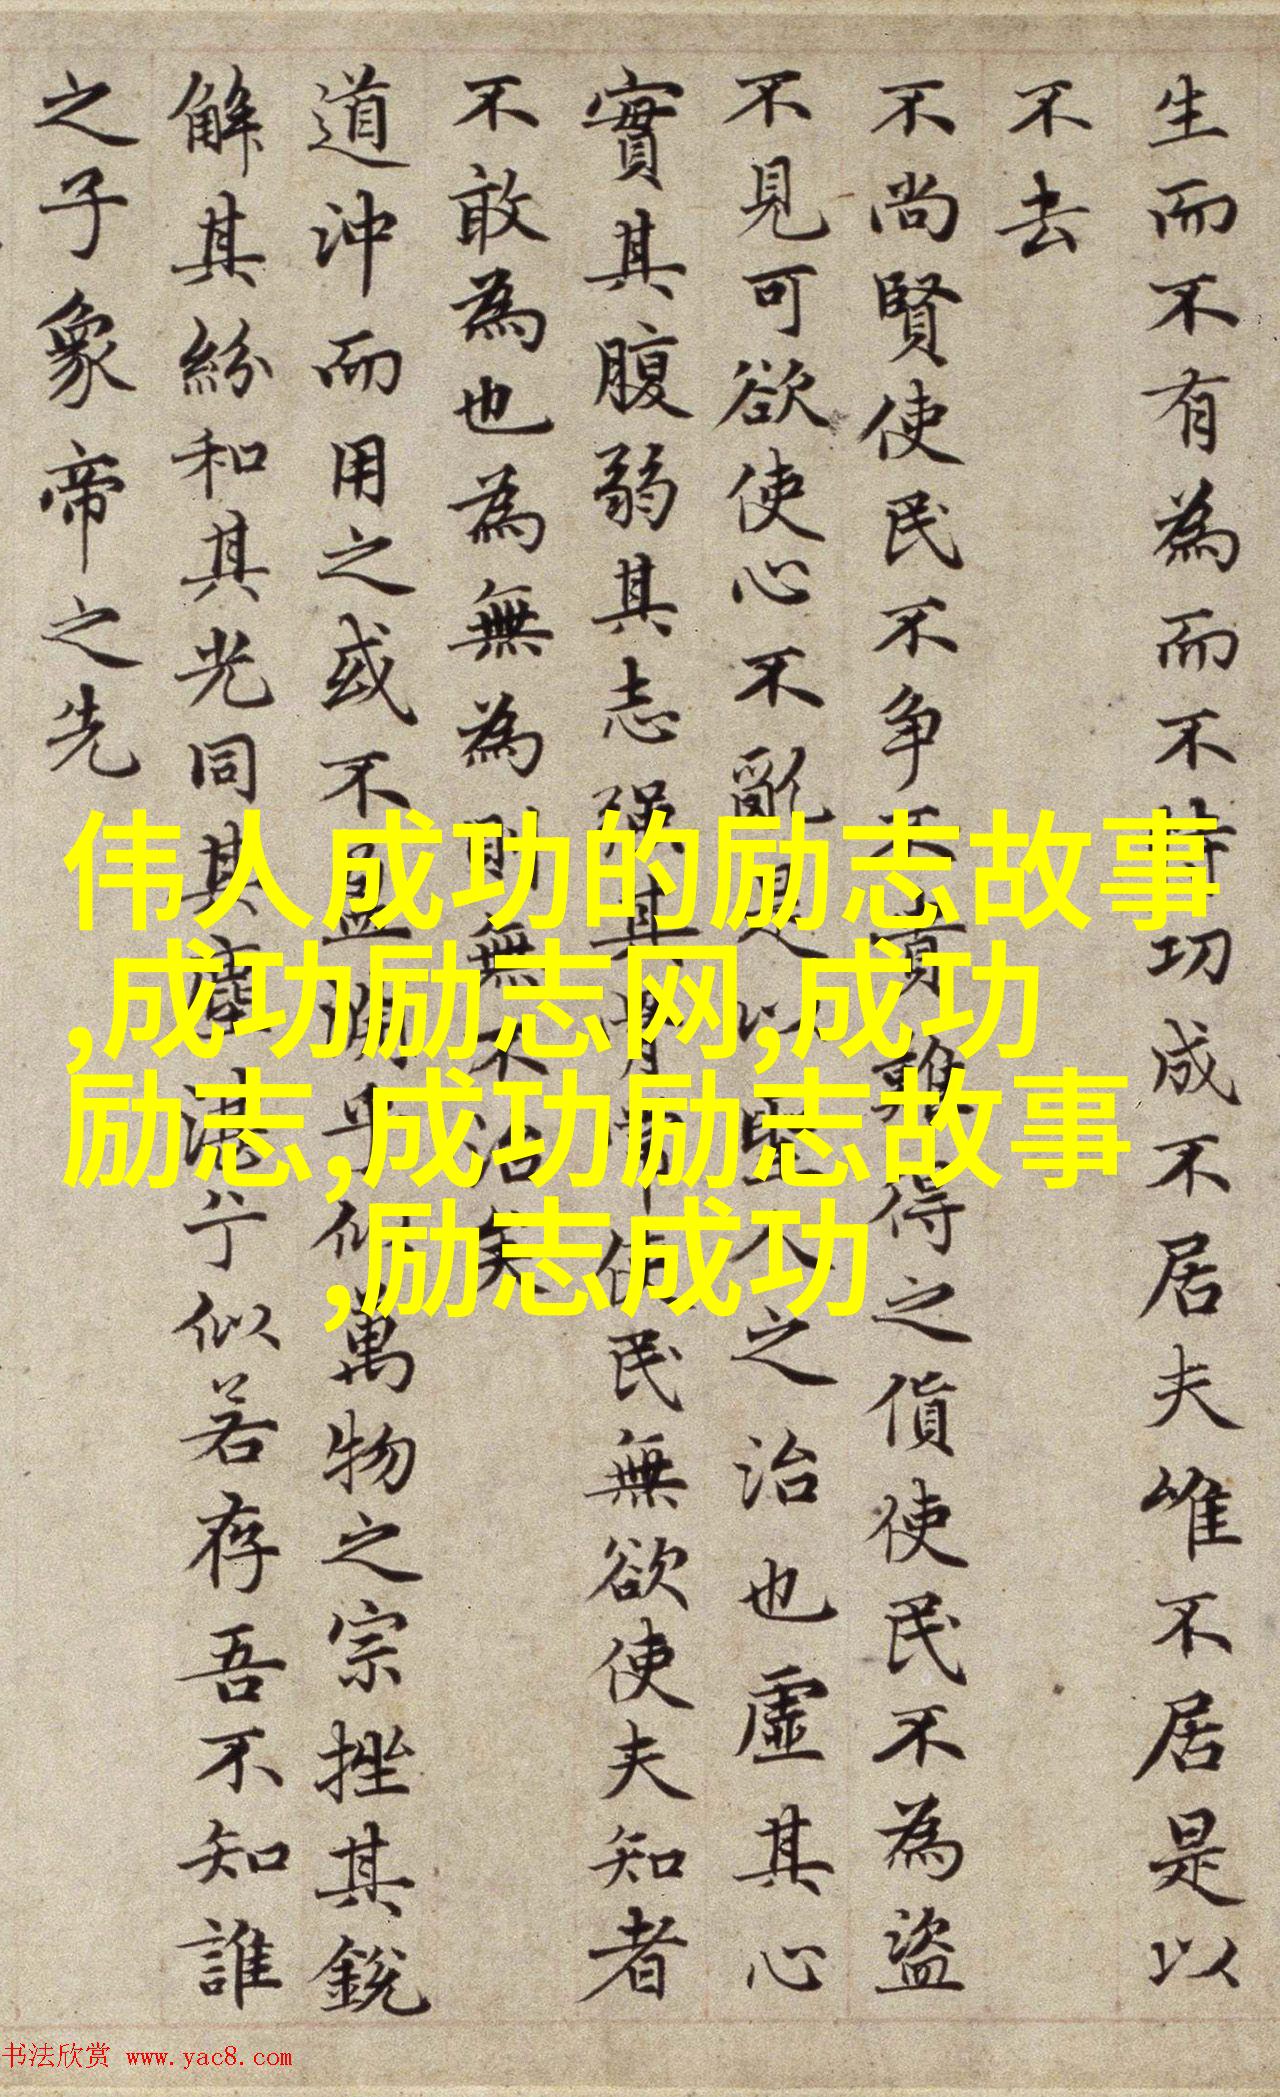 生而不有為而不恃功成不居夫唯不居是以
不去
不尚賢使民不争不貴難得之貨使民不為盜
不見可欲使心不亂是以聖人之治也虛其心
實其腹弱其志强其骨常使民無欲使夫知者
不敢為也為無為則無不治矣
道沖而用之或不盈淵乎似萬物之宗挫其銳
解其紛和其光同其塵湛兮似若存吾不知誰
之子象帝之先
伟人成功的励志故事
,成功励志网,成功
励志,成功励志故事
,励志成功
书法欣赏 www.yac8.com